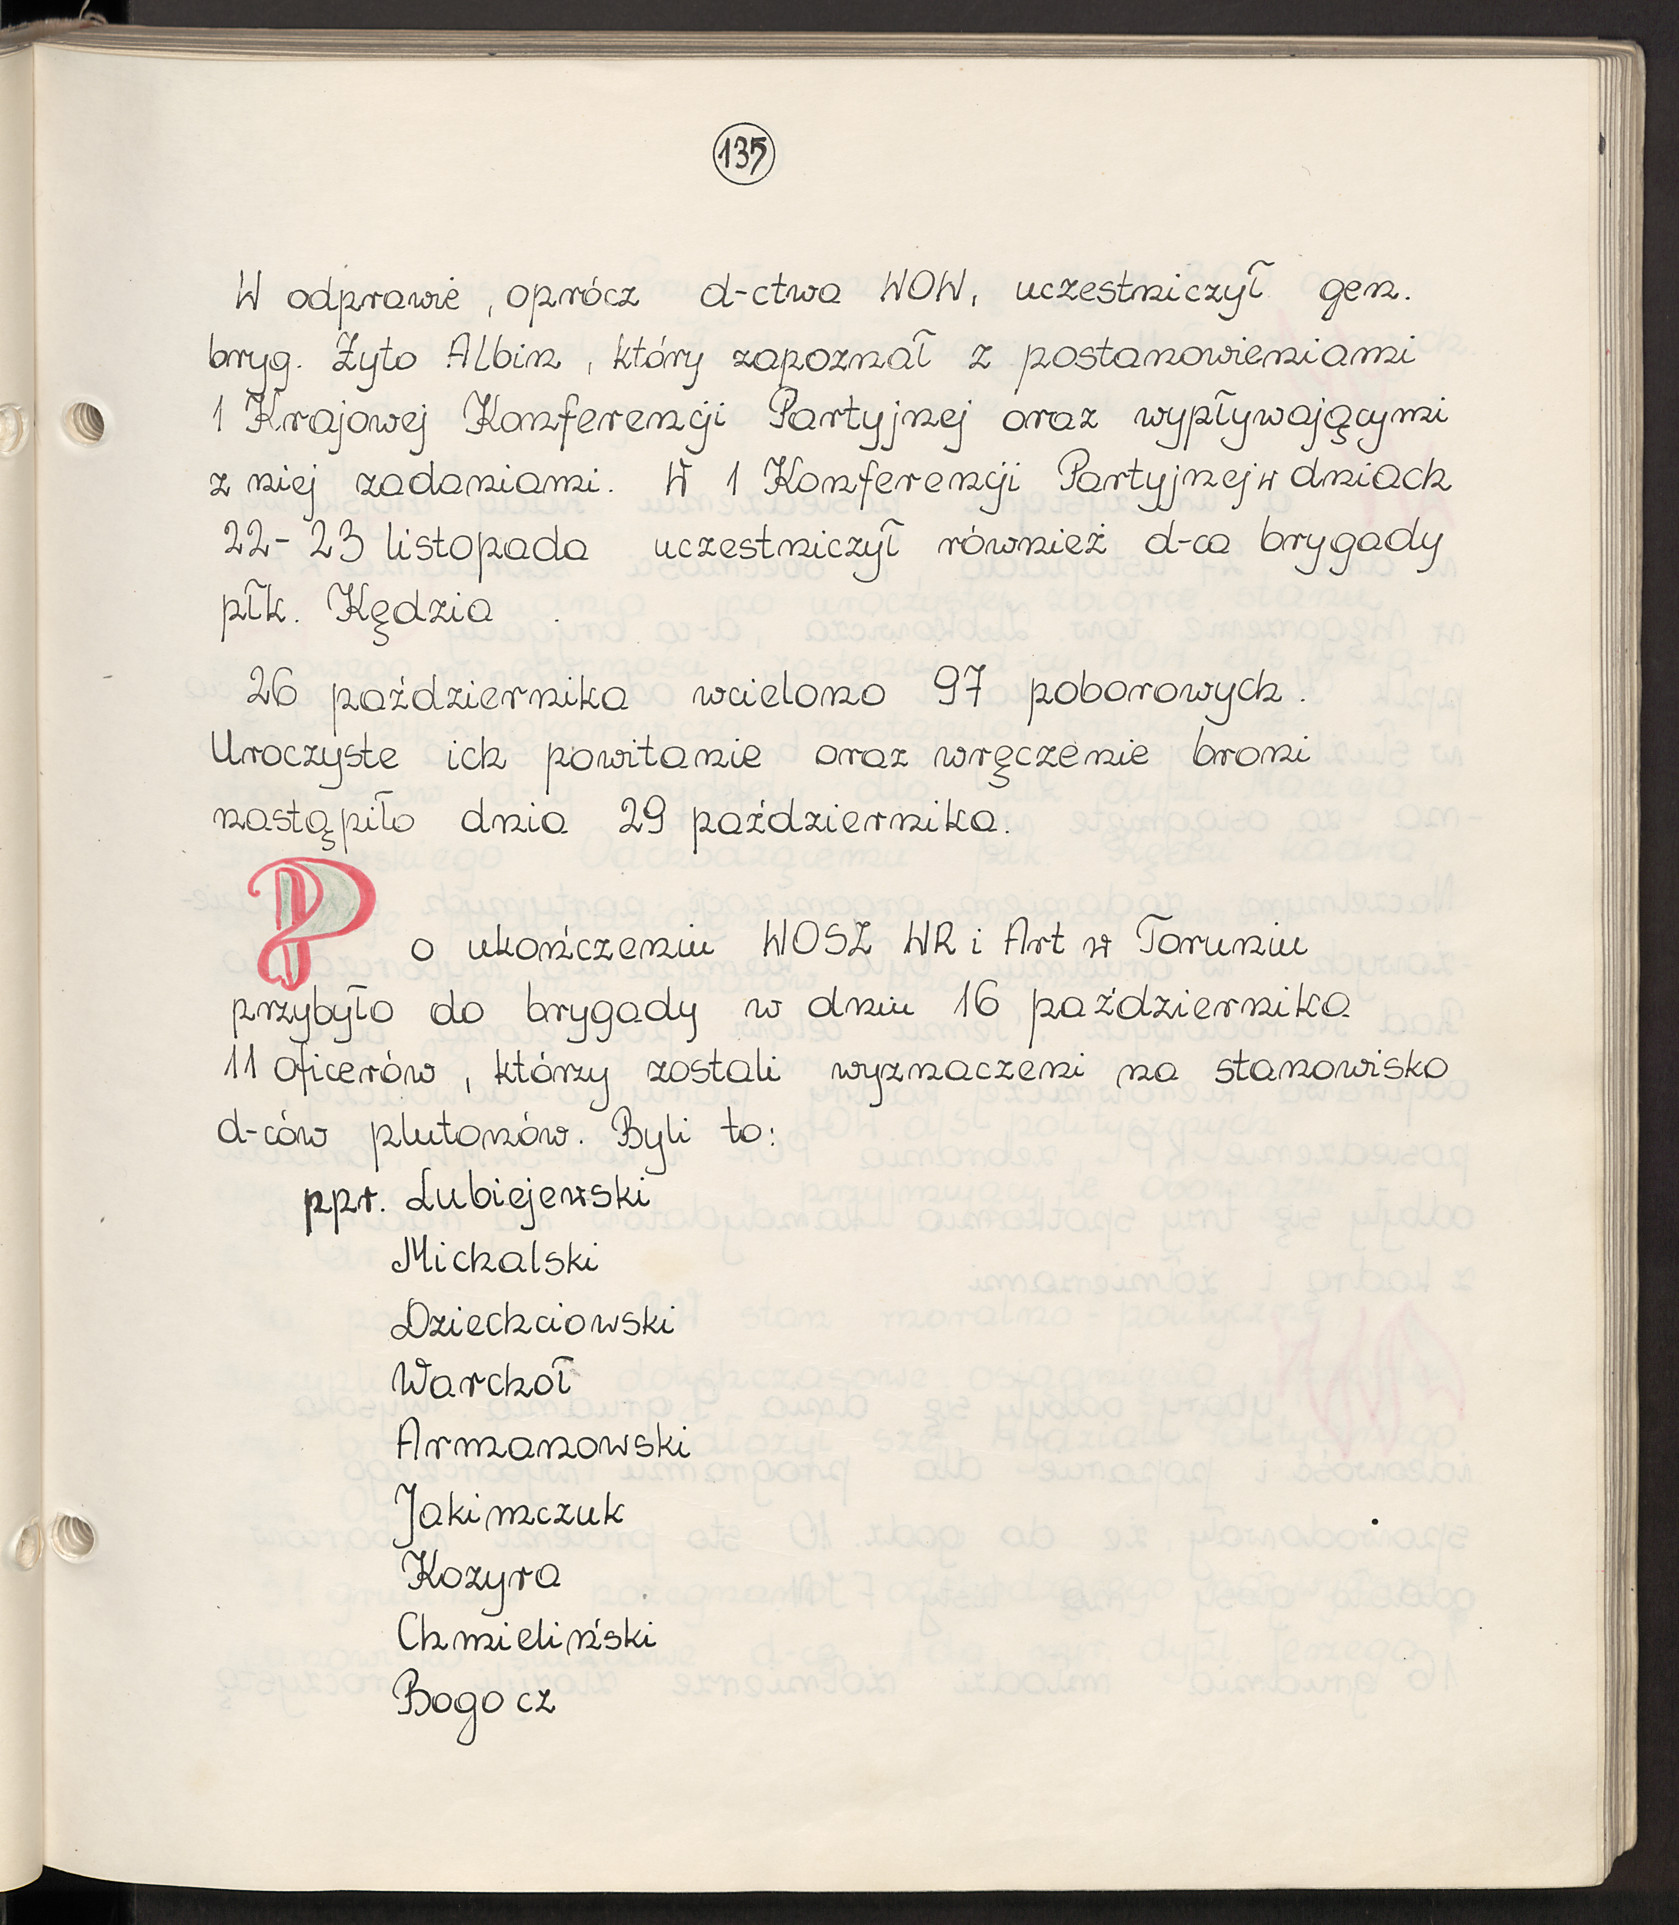 135
W odprawie, oprócz d-ctwa WOW, uczestniczył gen.
bryg. Żyto Albin, który zapoznał z postanowieniami
1 Krajowej Konferencji Partyjnej oraz wypływającymi
z niej zadaniami. W 1 Konferencji Partyjnej w dniach
22-23 listopada uczestniczył również d-ca brygady
płk. Kędzia
26 października wcielono 97 poborowych.
Uroczyste ich powitanie oraz wręczenie broni
nastąpiło dnia 29 października.
Po ukończeniu WOSZ WR i Art w Toruniu
przybyło do brygady w dniu 16 października
11 oficerów, którzy zostali wyznaczeni na stanowisko
d-ców plutonów. Byli to:
ppr. Lubiejewski
Michalski
Dziechciowski
Warchoł
Armanowski
Jakimczuk
Kozyra
Chmieliński
Bogocz